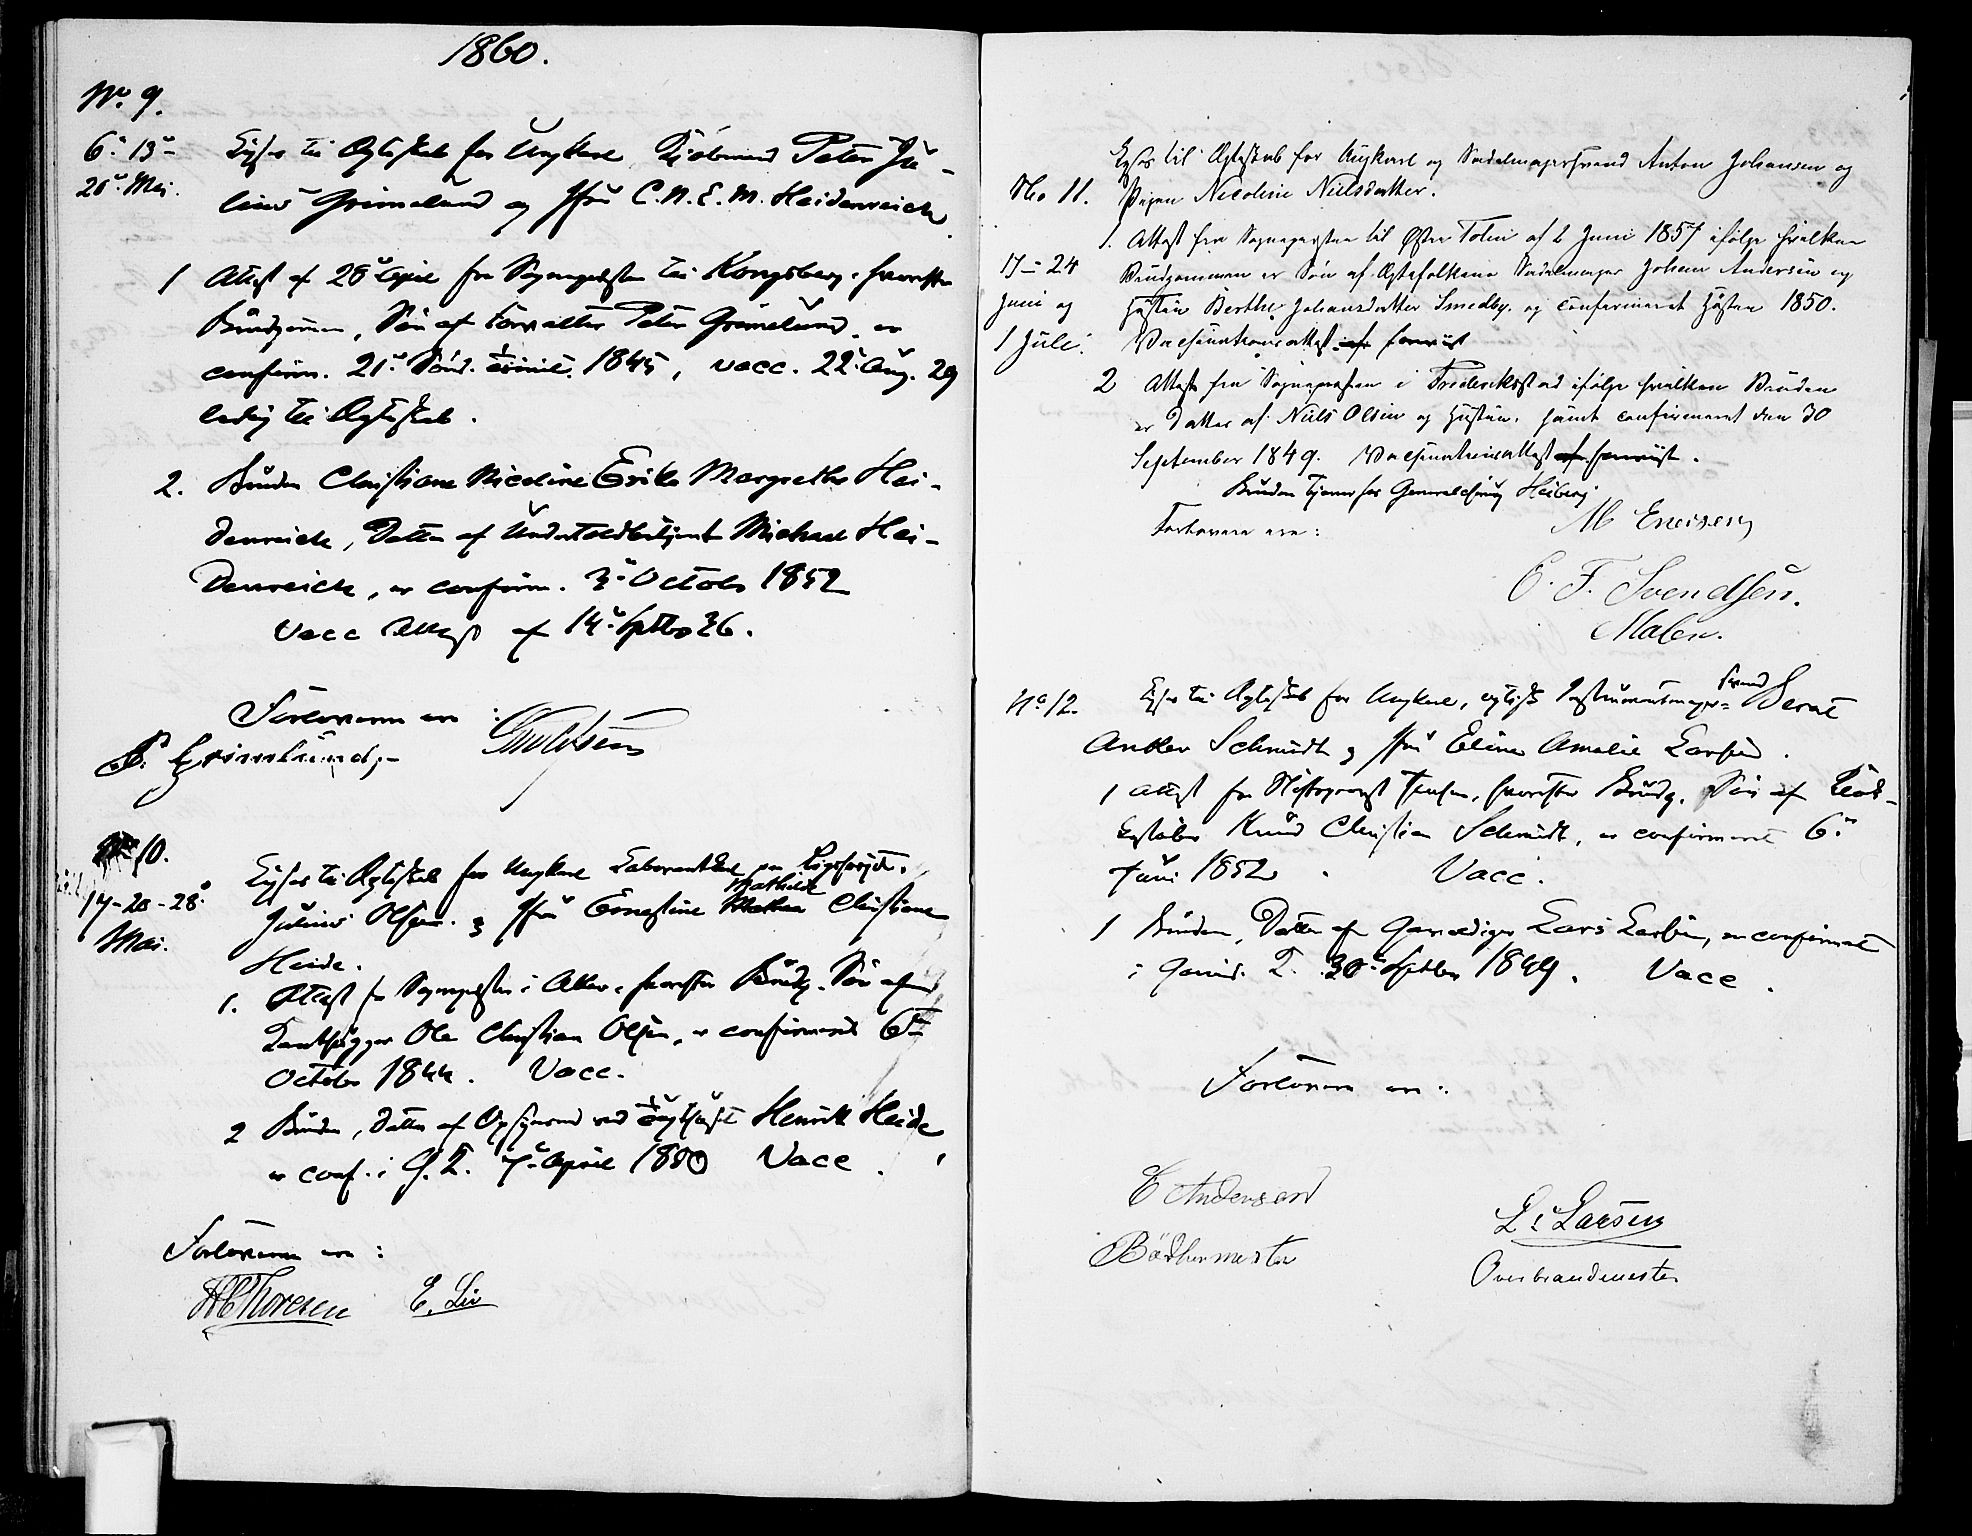 1860.
No. 9.
6. 13
20. Mai.
Lyses til Ægteskab for Ungkarl, Kjøbmand Peter Ju-
lius Grimelund og Jfr C. N. E. M. Heidenreich.
1 Attest af 25 April fra Sognepresten til Kongsberg, hvorefter
Brudgommen, Søn af Forvalter Peter Grimelund, er
confirm. 21. Sønd. 1845, vacc. 22. Aug. 29
ledig til Ægteskab.
2. Bruden Christiane Nicoline Erike Margrethe Hei-
denreich, Datter af Undertoldbetjent Michael Hei-
denreich, er confirm. 3. Octob 1852
Vacc Attest af 14. Septbr 36.
Forloverne ere :
P. Grimelund,
No 10.
17-20-28.
Mai.
Lyses til Ægteskab for Ungkarl Laborantkarl paa Rigshospit.
Julius Olsen og Jfr Ernestine Mathilde Christiane
Heide.
1. Attest fra Sognepresten i Aker, hvorefter Brudg. Søn af
Ole Christian Olsen, er confirmeret 6
October 1844. Vacc.
2 Bruden, Datter af Opsynsmd ved Henrik Heide
er conf. i G. T. 7. April 1850 Vacc.
Forloverne ere :
H C Thoresen E. Lie
Lyses til Ægteskab for Ungkarl og Sadelmagersvend Anton Johansen og
No 11. Pigen Nicoline Nielsdatter.
1. Attest fra Sognepresten til Østre Toten af 2 Juni 1857 ifølge hvilken
17 - 24 Brudgommen er Søn af Ægtefolkene Sadelmager Johan Andersen og
Juni og Hustru Berthe Johansdatter Smedby, og confirmeret Høsten 1850.
1 Juli. Vaccinationsattest forevist
2 Attest fra Sognepresten i Frederiksstad ifølge hvilken Bruden
er Datter af Niels Olsen og Hustru, samt confirmeret den 30
September 1849. Vaccinationsattest forevist.
Bruden tjener hos Heiberg
Forloverne ere :
M Eversen
C. F. Svendsen.
Maler.
No 12. Lyses til Ægteskab for Ungkarl, optisk Instrumentmager- svend Bernt
Anker Schmidt og Jfr Eline Amalie Larsen.
1 Attest fra Stiftsprovst Jensen, hvorefter Brudg. Søn af
Knud Christian Schmidt, er confirmeret 6.
Juni 1852. Vacc.
1 Bruden, Datter af Lars Larsen, er confirmeret
i T. 30. Septbr 1849. Vacc.
Forloverne ere :
C Andersen
Bødkermester
L. Larsen
Overbrandmester